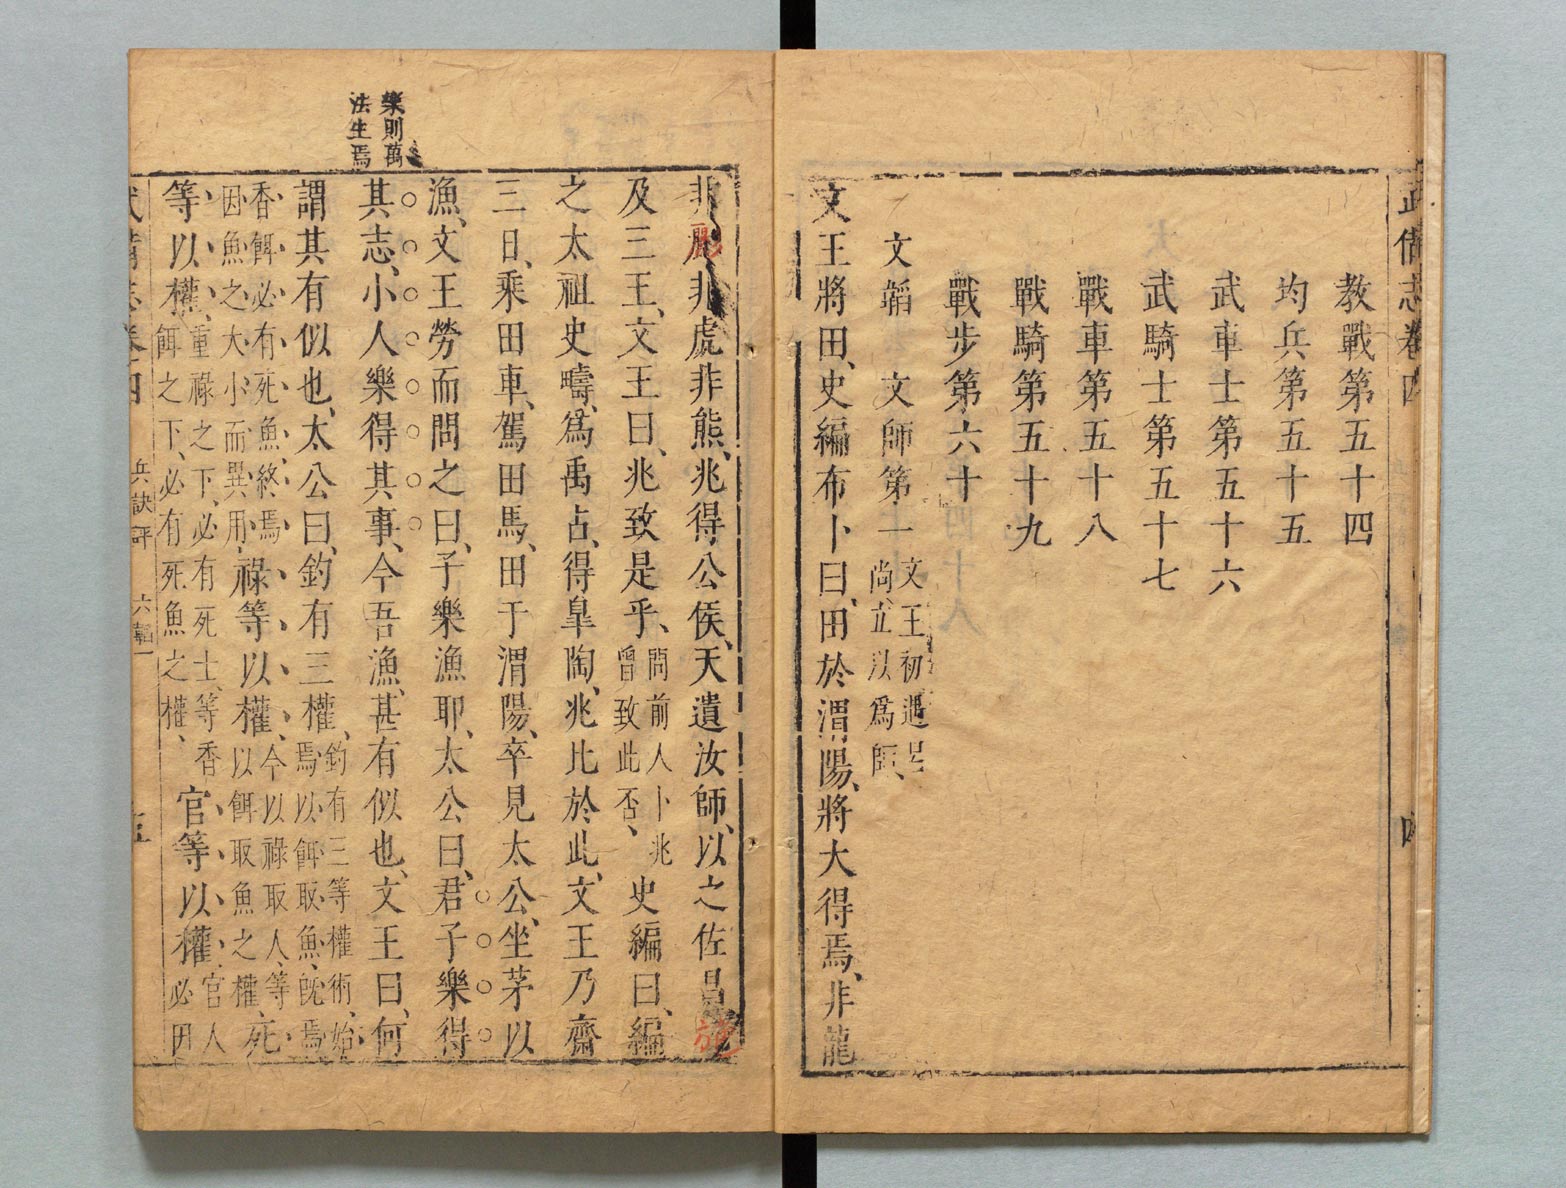 武備志卷四
四
教戰第五十四
均兵第五十五
武車士第五十六
武騎士第五十七
戰車第五十八
戰騎第五十九
戰步第六十
文韜　文師第一
文王初遇呂
尚、立以爲師、
文王將田、史編布卜曰、田於渭陽、將大得焉、非龍
非彲、非虎非熊、兆得公侯、天遺汝師、以之佐昌、施
及三王、文王曰、兆致是乎、
問前人卜兆
曾致此否、
史編曰、編
之太祖史疇、爲禹占、得皐陶、兆比於此、文王乃齋
三日、乘田車、駕田馬、田于渭陽、卒見太公、坐茅以
漁、文王勞而問之曰、子樂漁耶、太公曰、君子樂得
樂則萬
法生焉
其志、小人樂得其事、今吾漁、甚有似也、文王曰、何
謂其有似也、太公曰、釣有三權、
釣有三等權術、始
焉以餌取魚、旣焉
香餌必有死魚、終焉
因魚之大小而異用、
祿等以權、
今以祿取人、等
以餌取魚之權、
死
等以權、
重祿之下、必有死士、等香
餌之下、必有死魚之權、
官等以權、
官人
必因
武備志卷四
兵訣評
六韜一
五